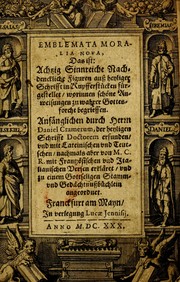 EMBLEMATA MORA-
LIA NOVA,
Das ist:
Achtzig Sinnreiche Nach-
denckliche Figuren auß heyliger
Schrifft in Kupfferstücken für-
gestellet, worinnen schöne An-
weisungen zu wahrer Gottes-
forcht begrieffen.
Anfänglichen durch Herrn
Daniel Cramerum, der heyligen
Schrifft Doctorem erfunden/
vnd mit Lateinischen vnd Teut-
schen/ nachmals aber von M. C.
R. mit Frantzösischen vnd Ita-
lianischen Versen erkläret/ vnd
zu einem Gottseligen Stamm-
vnd Gedächtnüßbüchlein
angeordnet.
Franckfurt am Mayn/
In verlegung Lucæ Jennisij.
ANNO M.DC.XXX.
DANIEL